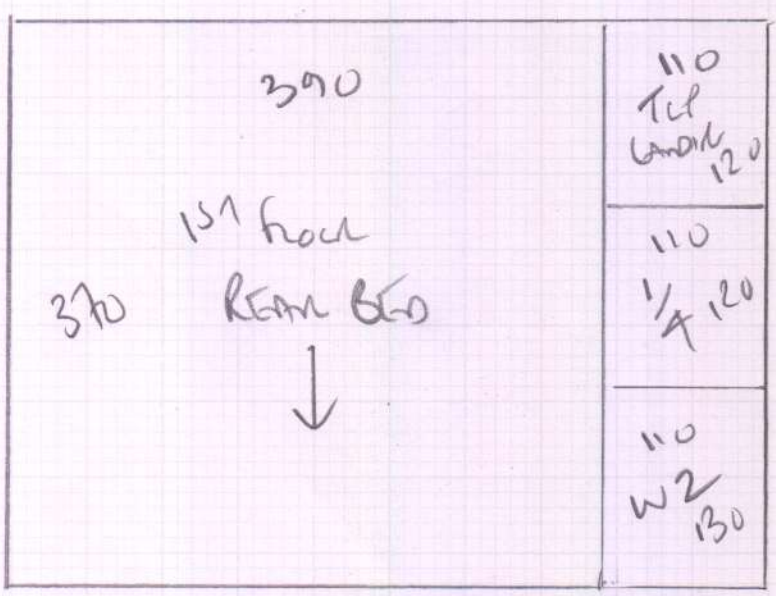 390
1ST FLOOR
370
REAR BED
110
TOP
LANDING
120
110
1/4 120
110
W2
130